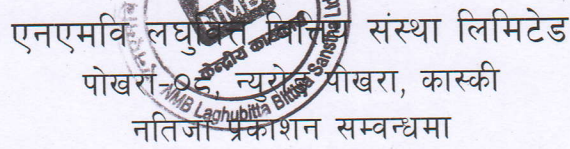 एनएमवि लघुवित्त वित्तिय संस्था लिमिटेड
पोखरा ०९, न्युरोड पोखरा, कास्की
नतिजा प्रकाशन सम्वन्धमा
NMB
केन्द्रीय कार्यालय
NMB Laghubitta Bittiya Sanstha Ltd